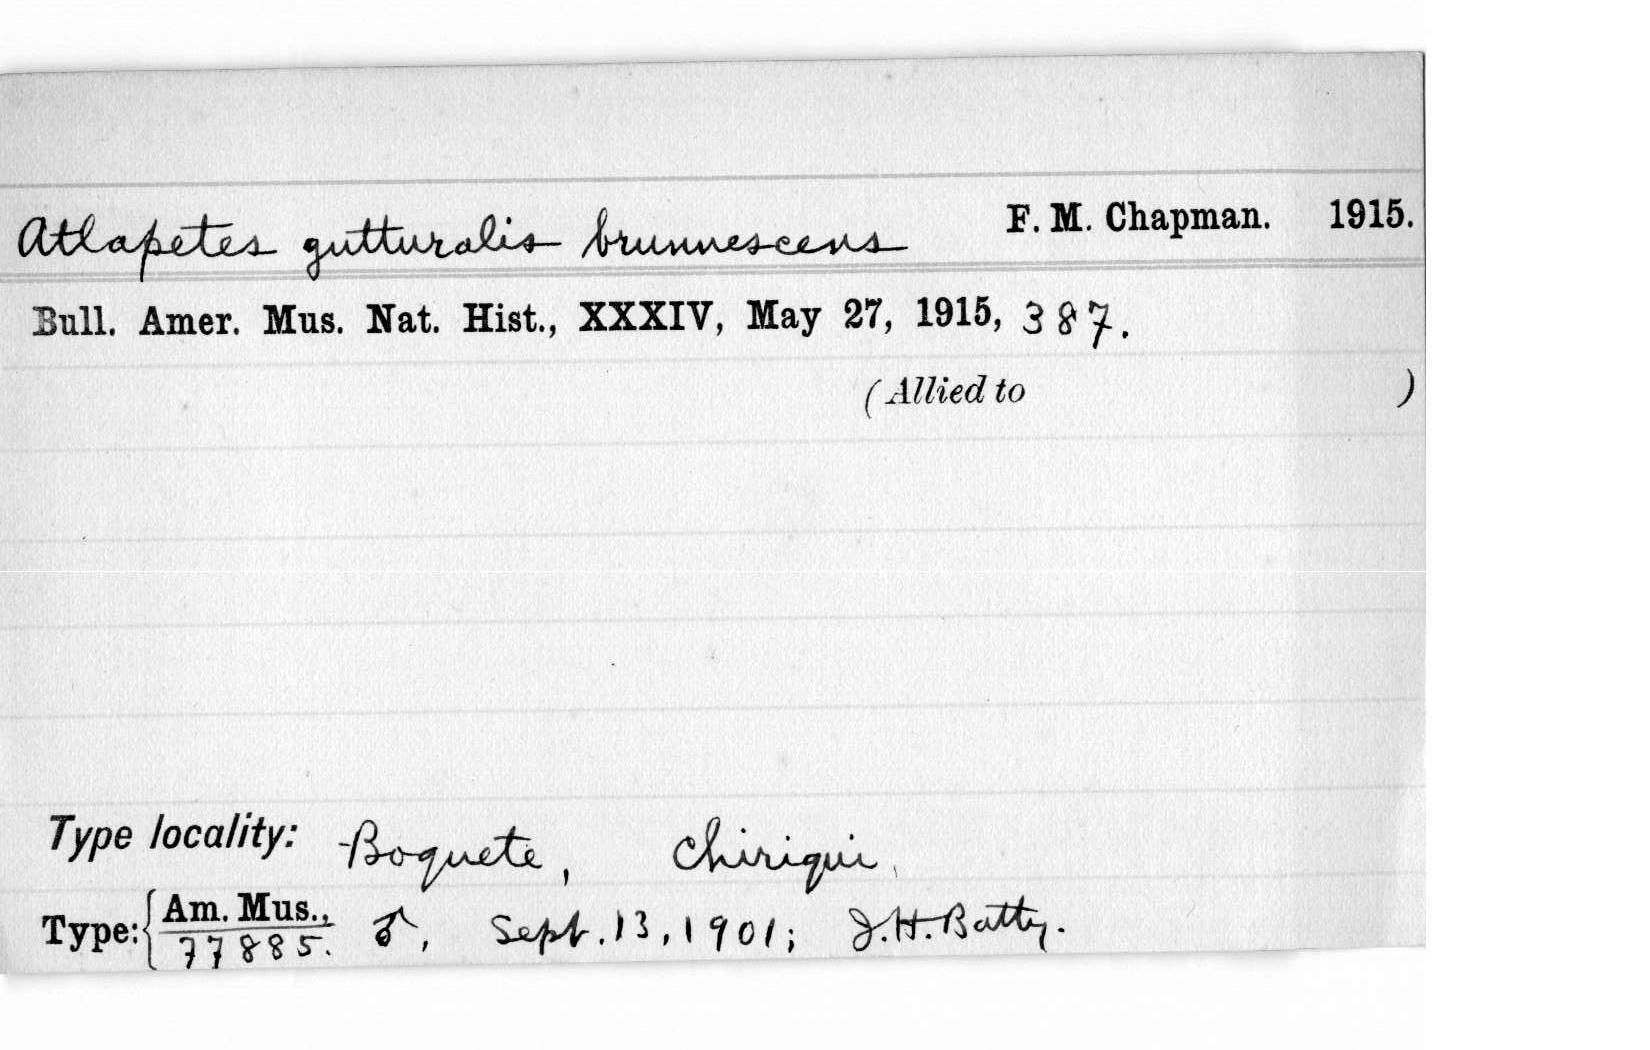 Atlapetes gutturalis brunnescens F. M. Chapman. 1915.
Bull. Amer. Mus. Nat. Hist., XXXIV, May 27, 1915, 387.
(Allied to )
Type locality: Boquete, Chiriqui.
Type: { Am. Mus., ♂, Sept. 13, 1901; J. H. Batty.
77885.